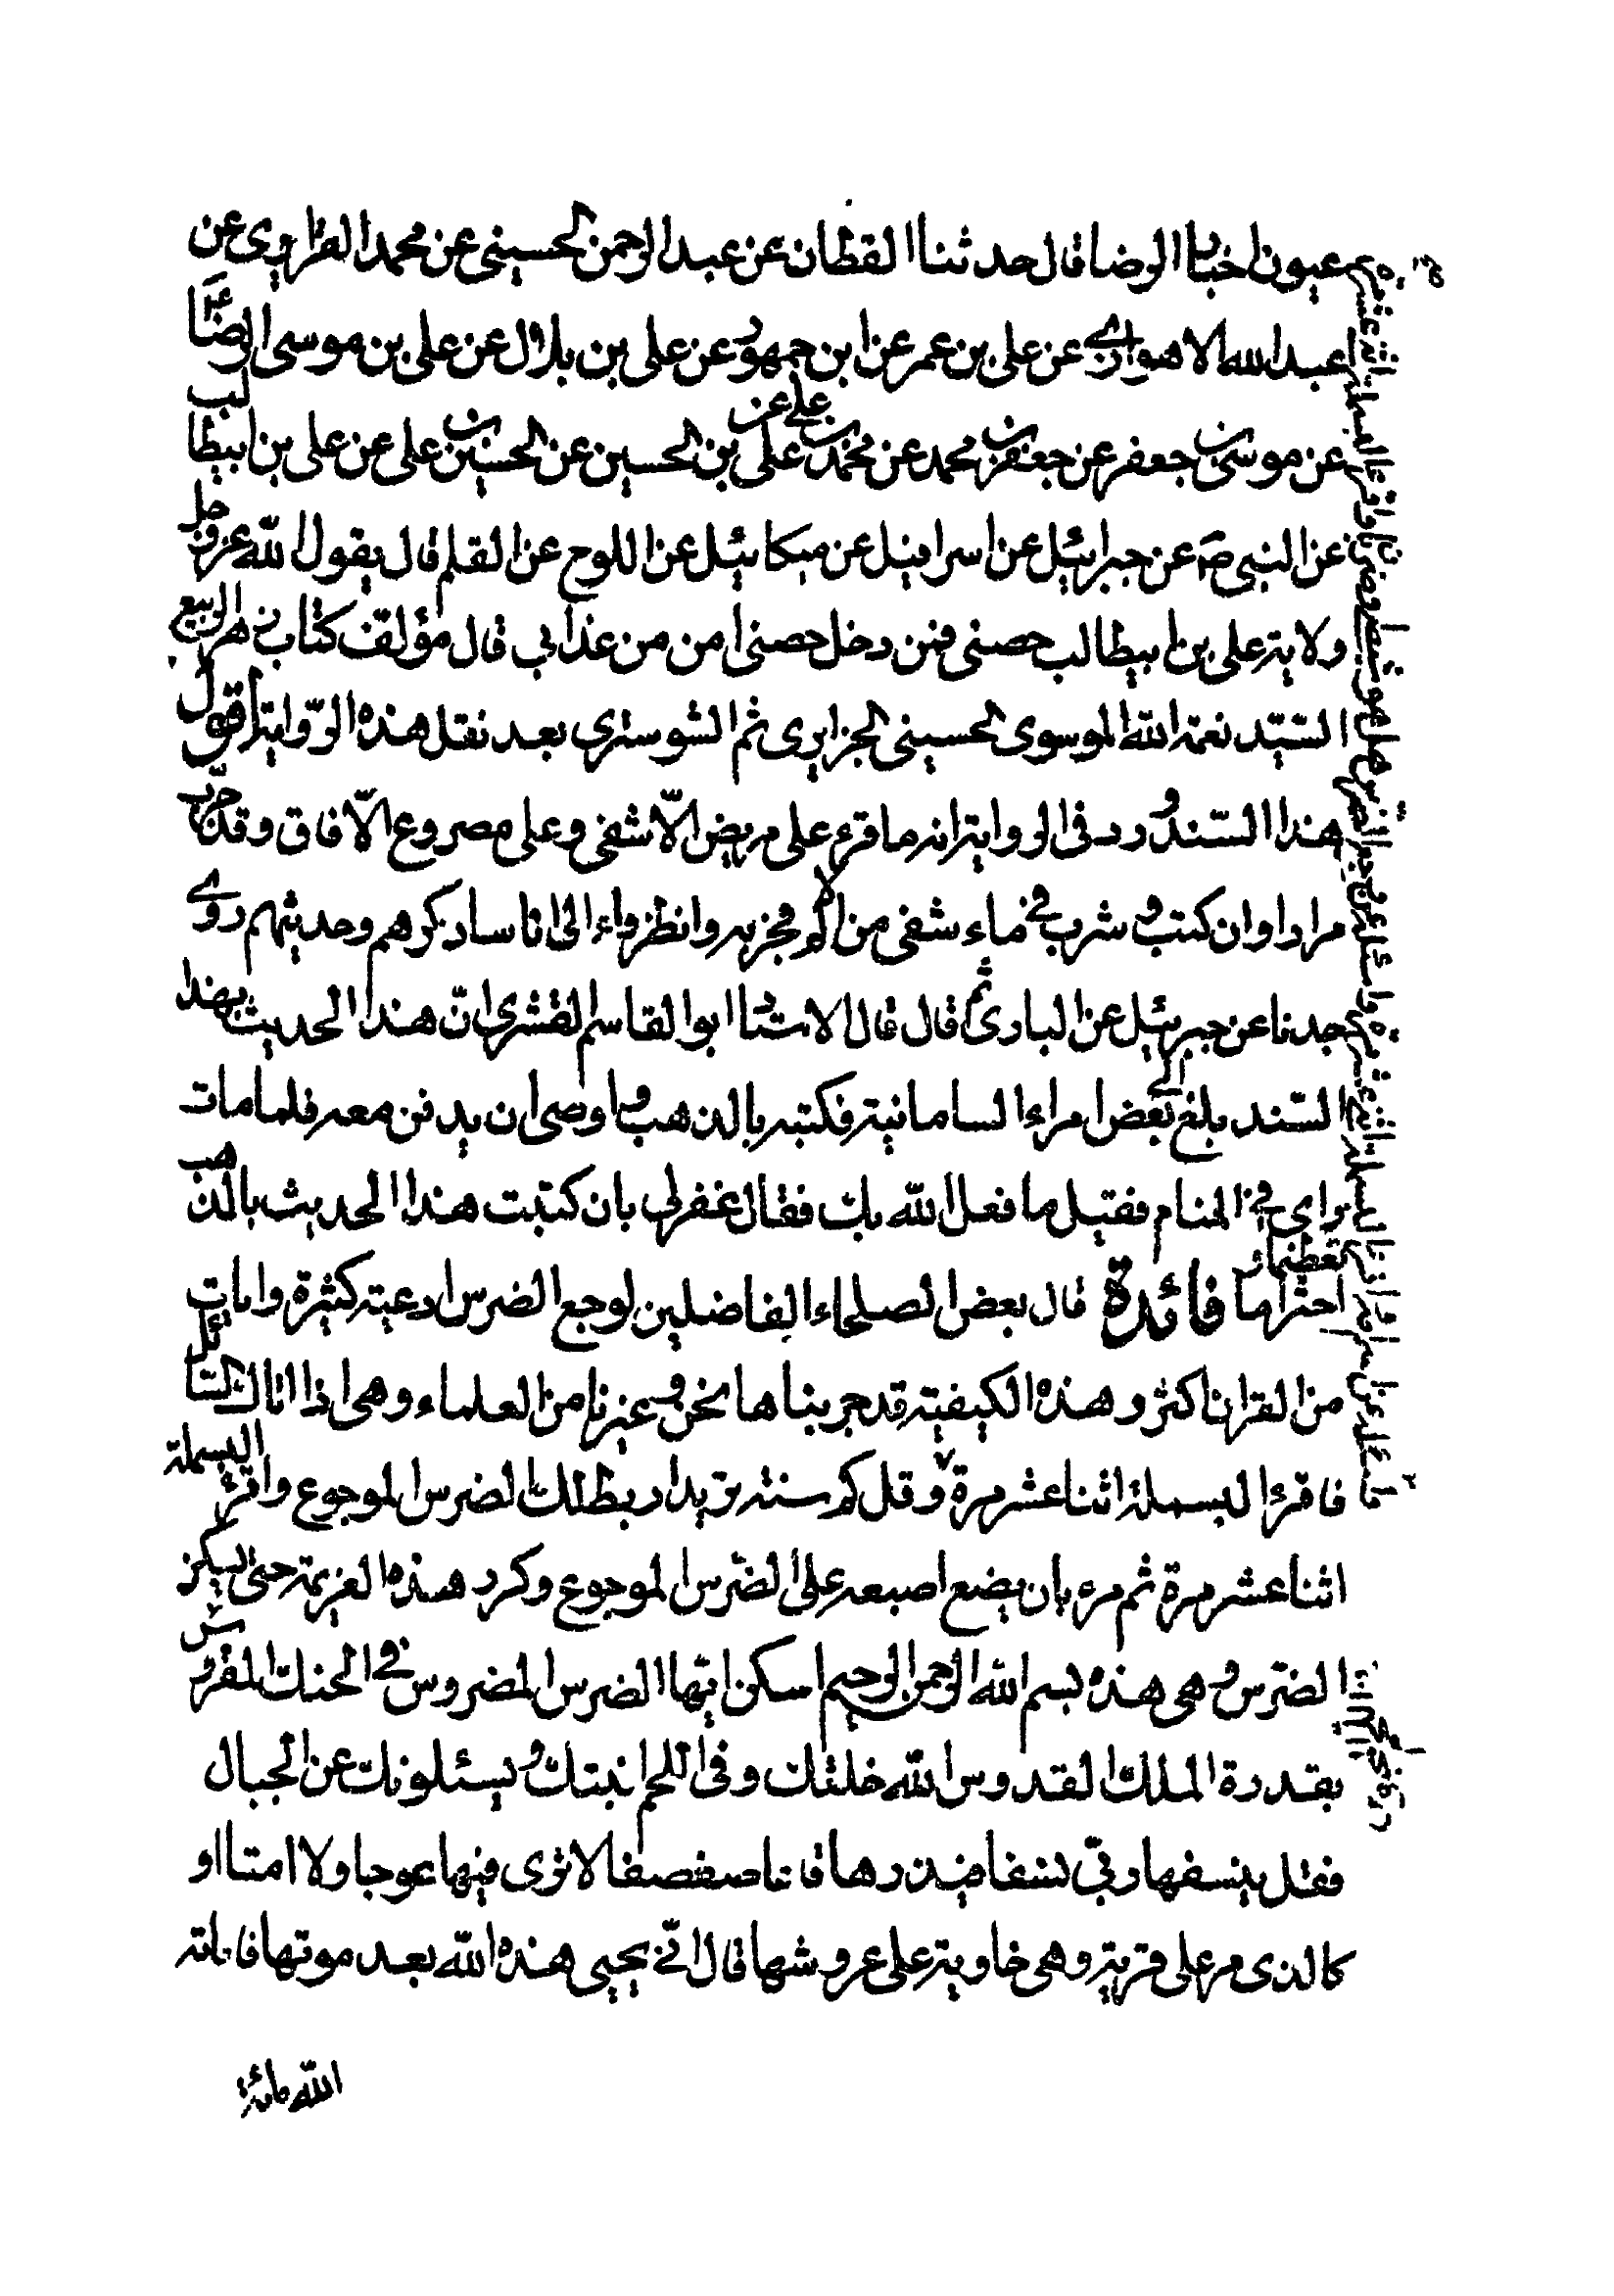 عيون اخبار الرضا قال حدثنا القطان عن عبد الرحمن الحسيني عن محمد الفزاري عن
عبد الله الاهوازي عن علي بن عمر عن ابن جمهور عن علي بن بلال عن علي بن موسى الرضا ع
عن موسى بن جعفر عن جعفر بن محمد عن محمد بن علي عن علي بن الحسين عن الحسين بن علي عن علي بن ابيطالب
عن النبي ص عن جبرائيل عن اسرافيل عن ميكائيل عن اللوح عن القلم قال يقول الله عز وجل
ولاية علي بن ابيطالب حصني فمن دخل حصني امن من عذابي قال مؤلف كتاب زهر الربيع
السيد نعمة الله الموسوي الحسيني الجزايري ثم الشوستري بعد نقل هذه الرواية اقول
هذا السند ورد في الرواية انه ما قرء على مريض الّا شفى وعلى مصروع الّا فاق وقد جرّب
مرارا وان كتب وشرب في ماء شفى من الالم مجزبه وانظروا الى اناسا ذكرهم وحديثهم روى
جدنا عن جبرئيل عن الباري ثم قال قال الاستاد ابو القاسم القشري انّ هذا الحديث بهذا
السّند بلغ الى بعض امراء السامانية فكتبه بالذهب واوصى ان يدفن معه فلما مات
راى في المنام فقيل ما فعل الله بك فقال غفر لي بان كتبت هذا الحديث بالذهب
تعظيما و احتراما فائدة قال بعض الصلحاء الفاضلين لوجع الضرس ادعية كثيرة وايات
من القران اكثر وهذه الكيفية قد جربناها نحن وغيرنا من العلماء وهي اذا اتاك السائل
فاقرء البسملة اثنا عشر مرة وقل كم سنة تريد اربط لك الضرس الموجوع واقرء البسملة
اثنا عشر مرة ثم مره بان يضع اصبعه على الضرس الموجوع وكرر هذه العزيمة حتى يسكن
الضرس وهي هذه بسم الله الرحمن الرحيم اسكن ايها الضرس المضروس في الحنك المفروش
بقدرة الملك القدوس الله خلقك وفي اللحم انبتك ويسئلونك عن الجبال
فقل ينسفها ربّي نسفا فيذرها قاعا صفصفا لا ترى فيها عوجا ولا امتا او
كالذي مر على قرية وهي خاوية على عروشها قال انّى يحيي هذه الله بعد موتها فاماته
الله مائة